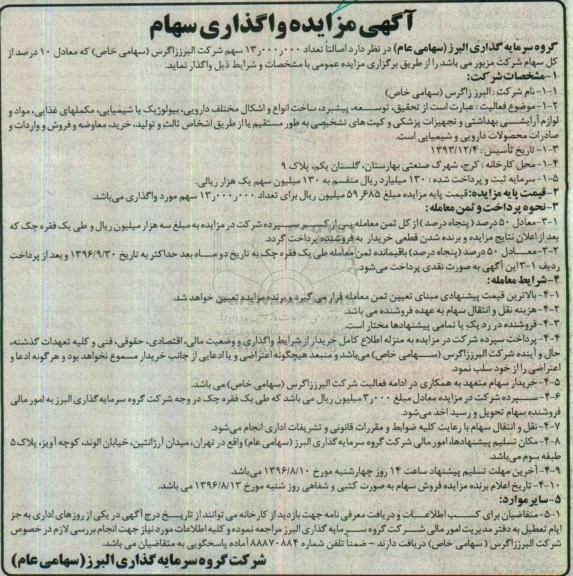 آگهی مزایده واگذاری سهام
گروه سرمایه گذاری البرز (سهامی عام) در نظر دارد اصالتاً تعداد ۱۳٫۰۰۰٫۰۰۰ سهم شرکت البرززاگرس (سهامی خاص) که معادل ۱۰ درصد از
کل سهام شرکت مزبور می باشد را از طریق برگزاری مزایده عمومی با مشخصات و شرایط ذیل واگذار نماید.
۱-مشخصات شرکت:
۱-۱- نام شرکت: البرز زاگرس (سهامی خاص)
۱-۲-موضوع فعالیت: عبارت است از تحقیق، توسعه، پیشبرد، ساخت انواع و اشکال مختلف دارویی، بیولوژیک یا شیمیایی، مکملهای غذایی، مواد و
لوازم آرایشی بهداشتی و تجهیزات پزشکی و کیت های تشخیصی به طور مستقیم یا از طریق اشخاص ثالث و تولید، خرید، معاوضه و فروش و واردات و
صادرات محصولات دارویی و شیمیایی است.
۱-۳- تاریخ تأسیس: ۱۳۹۳/۱۲/۴
۱-۴- محل کارخانه: کرج، شهرک صنعتی بهارستان، گلستان یکم، پلاک ۹
۱-۵-سرمایه ثبت و پرداخت شده: ۱۳۰ میلیارد ریال منقسم به ۱۳۰ میلیون سهم یک هزار ریالی.
۲-قیمت پایه مزایده: قیمت پایه مزایده مبلغ ۵۹٫۶۸۵ میلیون ریال برای تعداد ۱۳٫۰۰۰٫۰۰۰ سهم مورد واگذاری می‌باشد.
۳-نحوه پرداخت و ثمن معامله:
۳-۱- معادل ۵۰ درصد (پنجاه درصد) از کل ثمن معامله پس از کسر سپرده شرکت در مزایده به مبلغ سه هزار میلیون ریال و طی یک فقره چک که
بعد از اعلان نتایج مزایده و برنده شدن قطعی خریدار به فروشنده پرداخت گردد.
۳-۲- معادل ۵۰ درصد (پنجاه درصد) باقیمانده ثمن معامله طی یک فقره چک به تاریخ دو ماه بعد حداکثر به تاریخ ۱۳۹۶/۹/۳۰ و بعد از پرداخت
ردیف ۳-۱ این آگهی به صورت نقدی پرداخت می‌شود.
۴-شرایط معامله:
۴-۱-بالاترین قیمت پیشنهادی مبنای تعیین ثمن معامله قرار می گیرد و برنده مزایده تعیین خواهد شد.
۴-۲-هزینه نقل و انتقال سهام به عهده فروشنده می باشد.
۴-۳-فروشنده در رد یک یا تمامی پیشنهادها مختار است.
۴-۴-پرداخت سپرده شرکت در مزایده به منزله اطلاع کامل خریدار از شرایط واگذاری و وضعیت مالی، اقتصادی، حقوقی، فنی و کلیه تعهدات گذشته،
حال و آینده شرکت البرززاگرس (سهامی خاص) می‌باشد و منبعد هیچگونه اعتراضی و یا ادعایی از جانب خریدار مسموع نخواهد بود و هرگونه ادعا و
اعتراضی را از خود سلب نمود.
۴-۵-خریدار سهام متعهد به همکاری در ادامه فعالیت شرکت البرززاگرس (سهامی خاص) می باشد.
۴-۶-سپرده شرکت در مزایده معادل مبلغ ۳٫۰۰۰ میلیون ریال می باشد که طی یک فقره چک در وجه شرکت گروه سرمایه گذاری البرز به امور مالی
فروشنده سهام تحویل و رسید اخذ می‌شود.
۴-۷-نقل و انتقال سهام با رعایت کلیه ضوابط و مقررات قانونی و تشریفات اداری انجام می‌شود.
۴-۸-مکان تسلیم پیشنهادها، امور مالی شرکت گروه سرمایه گذاری البرز (سهامی عام) واقع در تهران، میدان آرژانتین، خیابان الوند، کوچه آویز، پلاک۵
طبقه سوم می‌باشد.
۴-۹-آخرین مهلت تسلیم پیشنهاد ساعت ۱۴ روز چهارشنبه مورخ ۱۳۹۶/۸/۱۰ می باشد.
۴-۱۰-تاریخ اعلام برنده مزایده فروش سهام به صورت کتبی و شفاهی روز شنبه مورخ ۱۳۹۶/۸/۱۳ می باشد.
۵-سایر موارد:
۵-۱-متقاضیان برای کسب اطلاعات و دریافت معرفی نامه جهت بازدید از کارخانه می توانند از تاریخ درج آگهی در یکی از روزهای اداری به جز
ایام تعطیل به دفتر مدیریت امور مالی شرکت گروه سرمایه گذاری البرز مراجعه نموده و کلیه اطلاعات مورد نیاز جهت انجام بررسی لازم در خصوص
شرکت البرززاگرس (سهامی خاص) دریافت دارند - ضمناً تلفن شماره ۸۸۸۷۰۸۸۴ آماده پاسخگویی به متقاضیان می باشد.
شرکت گروه سرمایه گذاری البرز (سهامی عام)